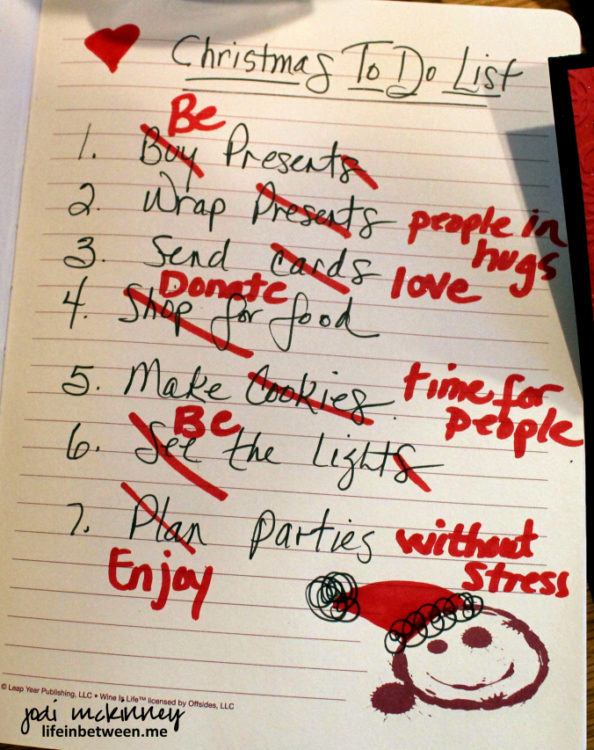 Christmas To Do List
Be
1. Buy Presents
2. Wrap Presents people in hugs
3. Send Cards love
Donate
4. Shop for food
5. Make Cookies time for people
Be
6. See the Lights
7. Plan parties without stress
Enjoy
© Leap Year Publishing, LLC • Wine is Life™ licensed by Offsides, LLC
jodi mckinney
lifeinbetween.me